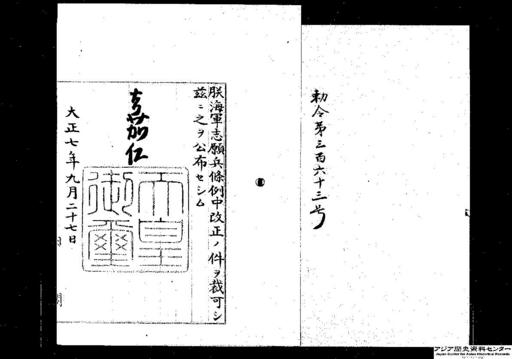 勅令第三百六十三号
朕海軍志願兵條例中改正ノ件ヲ裁可シ
玆ニ之ヲ公布セシム
嘉仁
天皇御璽
大正七年九月二十七日
アジア歴史資料センター
Japan Center for Asian Historical Records